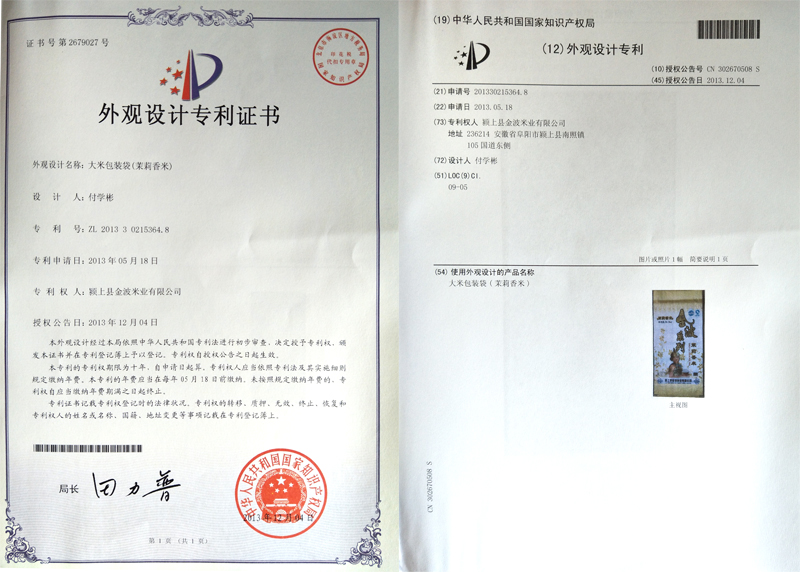 证书号第2679027号
外观设计专利证书
外观设计名称：大米包装袋(茉莉香米)
设 计 人：付学彬
专 利 号：ZL 2013 3 0215364.8
专利申请日：2013年05月18日
专 利 权 人：颍上县金波米业有限公司
授权公告日：2013年12月04日
本外观设计经过本局依照中华人民共和国专利法进行初步审查，决定授予专利权，颁
发本证书并在专利登记簿上予以登记。专利权自授权公告之日起生效。
本专利的专利权期限为十年，自申请日起算。专利权人应当依照专利法及其实施细则
规定缴纳年费。本专利的年费应当在每年05月18日前缴纳。未按照规定缴纳年费的，专
利权自应当缴纳年费期满之日起终止。
专利证书记载专利权登记时的法律状况。专利权的转移、质押、无效、终止、恢复和
专利权人的姓名或名称、国籍、地址变更等事项记载在专利登记簿上。
局长 田力普
中华人民共和国国家知识产权局
2013年12月04日
第1页（共1页）
(19)中华人民共和国国家知识产权局
(12)外观设计专利
(10)授权公告号 CN 302670508 S
(45)授权公告日 2013.12.04
(21)申请号 201330215364.8
(22)申请日 2013.05.18
(73)专利权人 颍上县金波米业有限公司
地址 236214 安徽省阜阳市颍上县南照镇
105国道东侧
(72)设计人 付学彬
(51)LOC(9)Cl.
09-05
图片或照片 1 幅 简要说明 1 页
(54)使用外观设计的产品名称
大米包装袋（茉莉香米）
金波
系列
茉莉香米
主视图
CN 302670508 S